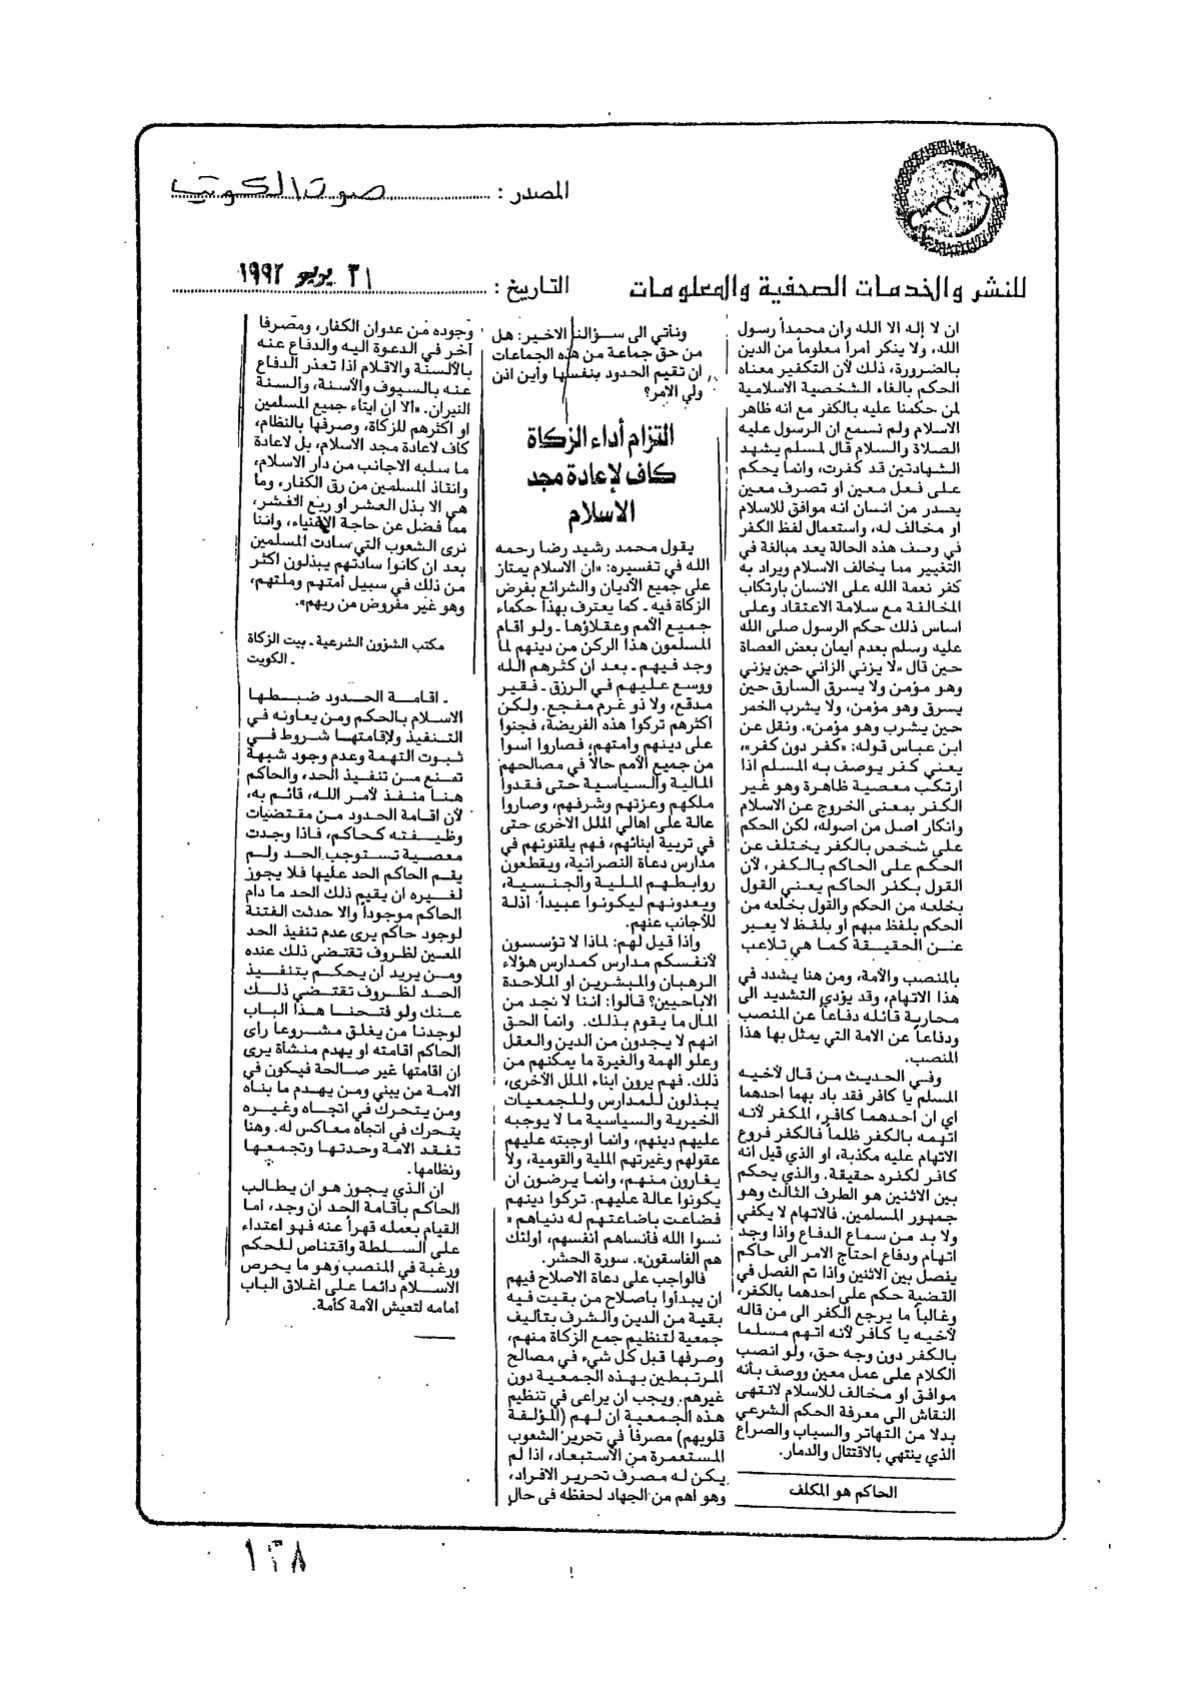 المصدر : صوت الكويت
للنشر والخدمات الصحفية والمعلومات
التاريخ : ٢١ يونيو ١٩٩٢
ان لا إله الا الله وأن محمداً رسول
الله، ولا ينكر أمراً معلوماً من الدين
بالضرورة، ذلك لأن التكفير معناه
الحكم بالغاء الشخصية الاسلامية
لمن حكمنا عليه بالكفر مع انه ظاهر
الاسلام ولم نسمع ان الرسول عليه
الصلاة والسلام قال لمسلم يشهد
الشهادتين قد كفرت، وانما يحكم
على فعل معين او تصرف معين
يصدر من انسان انه موافق للاسلام
او مخالف له، واستعمال لفظ الكفر
في وصف هذه الحالة يعد مبالغة في
التغيير مما يخالف الاسلام ويراد به
كفر نعمة الله على الانسان بارتكاب
المخالفة مع سلامة الاعتقاد وعلى
اساس ذلك حكم الرسول صلى الله
عليه وسلم بعدم ايمان بعض العصاة
حين قال «لا يزني الزاني حين يزني
وهو مؤمن ولا يسرق السارق حين
يسرق وهو مؤمن، ولا يشرب الخمر
حين يشرب وهو مؤمن». ونقل عن
ابن عباس قوله: «كفر دون كفر»،
يعني كفر يوصف به المسلم اذا
ارتكب معصية ظاهرة وهو غير
الكفر بمعنى الخروج عن الاسلام
وانكار اصل من اصوله، لكن الحكم
على شخص بالكفر يختلف عن
الحكم على الحاكم بالكفر، لأن
القول بكفر الحاكم يعني القول
بخلعه من الحكم والقول بخلعه من
الحكم بلفظ مبهم او بلفظ لا يعبر
عن الحقيقة كما هي تلاعب
بالمنصب والأمة، ومن هنا يشدد في
هذا الاتهام، وقد يؤدي التشديد الى
محاربة قائله دفاعاً عن المنصب
ودفاعاً عن الامة التي يمثل بها هذا
المنصب.
وفي الحديث من قال لأخيه
المسلم يا كافر فقد باد بهما احدهما
اي ان احدهما كافر، المكفر لأنه
اتهمه بالكفر ظلماً فالكفر فروع
الاتهام عليه مكذبة، او الذي قيل انه
كافر لكفره حقيقة. والذي يحكم
بين الاثنين هو الطرف الثالث وهو
جمهور المسلمين. فالاتهام لا يكفي
ولا بد من سماع الدفاع واذا وجد
اتهام ودفاع احتاج الامر الى حاكم
يفصل بين الاثنين واذا تم الفصل في
القضية حكم على احدهما بالكفر،
وغالباً ما يرجع الكفر الى من قاله
لأخيه يا كافر لأنه اتهم مسلما
بالكفر دون وجه حق، ولو انصب
الكلام على عمل معين ووصف بأنه
موافق او مخالف للاسلام لانتهى
النقاش الى معرفة الحكم الشرعي
بدلا من التهاتر والسباب والصراع
الذي ينتهي بالاقتتال والدمار.
الحاكم هو المكلف
ونأتي الى سؤالنا الاخير: هل
من حق جماعة من هذه الجماعات
ان تقيم الحدود بنفسها وأين اذن
ولي الامر؟
التزام أداء الزكاة
كاف لإعادة مجد
الاسلام
يقول محمد رشيد رضا رحمه
الله في تفسيره: «ان الاسلام يمتاز
على جميع الأديان والشرائع بفرض
الزكاة فيه ـ كما يعترف بهذا حكماء
جميع الأمم وعقلاؤها ـ ولو اقام
المسلمون هذا الركن من دينهم لما
وجد فيهم ـ بعد ان كثرهم الله
ووسع عليهم في الرزق ـ فقير
مدقع، ولا ذو غرم مفجع. ولكن
اكثرهم تركوا هذه الفريضة، فجنوا
على دينهم وأمتهم، فصاروا أسوا
من جميع الأمم حالاً في مصالحهم
المالية والسياسية حتى فقدوا
ملكهم وعزتهم وشرفهم، وصاروا
عالة على اهالي الملل الاخرى حتى
في تربية ابنائهم، فهم يلقنونهم في
مدارس دعاة النصرانية، ويقطعون
روابطهم الملية والجنسية،
ويعدونهم ليكونوا عبيداً اذلة
للأجانب عنهم.
واذا قيل لهم: لماذا لا تؤسسون
لأنفسكم مدارس كمدارس هؤلاء
الرهبان والمبشرين او الملاحدة
الاباحيين؟ قالوا: اننا لا نجد من
المال ما يقوم بذلك. وانما الحق
انهم لا يجدون من الدين والعقل
وعلو الهمة والغيرة ما يمكنهم من
ذلك. فهم يرون ابناء الملل الأخرى،
يبذلون للمدارس وللجمعيات
الخيرية والسياسية ما لا يوجبه
عليهم دينهم، وانما اوجبته عليهم
عقولهم وغيرتهم الملية والقومية، ولا
يغارون منهم، وانما يرضون ان
يكونوا عالة عليهم. تركوا دينهم
فضاعت باضاعتهم له دنياهم «
نسوا الله فأنساهم انفسهم، اولئك
هم الفاسقون». سورة الحشر.
فالواجب على دعاة الاصلاح فيهم
ان يبدأوا باصلاح من بقيت فيه
بقية من الدين والشرف بتأليف
جمعية لتنظيم جمع الزكاة منهم،
وصرفها قبل كل شيء في مصالح
المرتبطين بهذه الجمعية دون
غيرهم. ويجب ان يراعى في تنظيم
هذه الجمعية ان لهم (المؤلفة
قلوبهم) مصرفاً في تحرير الشعوب
المستعمرة من الاستبعاد، اذا لم
يكن له مصرف تحرير الافراد،
وهو اهم من الجهاد لحفظه في حال
وجوده من عدوان الكفار، ومصرفا
آخر في الدعوة اليه والدفاع عنه
بالألسنة والاقلام اذا تعذر الدفاع
عنه بالسيوف والأسنة، والسنة
النيران. «ألا ان ايتاء جميع المسلمين
او اكثرهم للزكاة، وصرفها بالنظام،
كاف لاعادة مجد الاسلام، بل لاعادة
ما سلبه الاجانب من دار الاسلام،
وانقاذ المسلمين من رق الكفار، وما
هي الا بذل العشر او ربع العشر،
مما فضل عن حاجة الاغنياء، واننا
نرى الشعوب التي سادت المسلمين
بعد ان كانوا سادتهم يبذلون اكثر
من ذلك في سبيل أمتهم وملتهم،
وهو غير مفروض من ربهم».
مكتب الشؤون الشرعية ـ بيت الزكاة
ـ الكويت
ـ اقامة الحدود ضبطها
الاسلام بالحكم ومن يعاونه في
التنفيذ ولإقامتها شروط في
ثبوت التهمة وعدم وجود شبهة
تمنع من تنفيذ الحد، والحاكم
هنا منفذ لأمر الله، قائم به،
لأن اقامة الحدود من مقتضيات
وظيفته كحاكم، فاذا وجدت
معصية تستوجب الحد ولم
يقم الحاكم الحد عليها فلا يجوز
لغيره ان يقيم ذلك الحد ما دام
الحاكم موجوداً والا حدثت الفتنة
لوجود حاكم يرى عدم تنفيذ الحد
المعين لظروف تقتضي ذلك عنده
ومن يريد ان يحكم بتنفيذ
الحد لظروف تقتضي ذلك
عنك ولو فتحنا هذا الباب
لوجدنا من يغلق مشروعا رأى
الحاكم اقامته او يهدم منشأة يرى
ان اقامتها غير صالحة فيكون في
الامة من يبني ومن يهدم ما بناه
ومن يتحرك في اتجاه وغيره
يتحرك في اتجاه معاكس له. وهنا
تفقد الامة وحدتها وتجمعها
ونظامها.
ان الذي يجوز هو ان يطالب
الحاكم بأقامة الحد ان وجد، اما
القيام بعمله قهراً عنه فهو اعتداء
على السلطة واقتناص للحكم
ورغبة في المنصب وهو ما يحرص
الاسلام دائما على اغلاق الباب
امامه لتعيش الأمة كأمة.
١٣٨